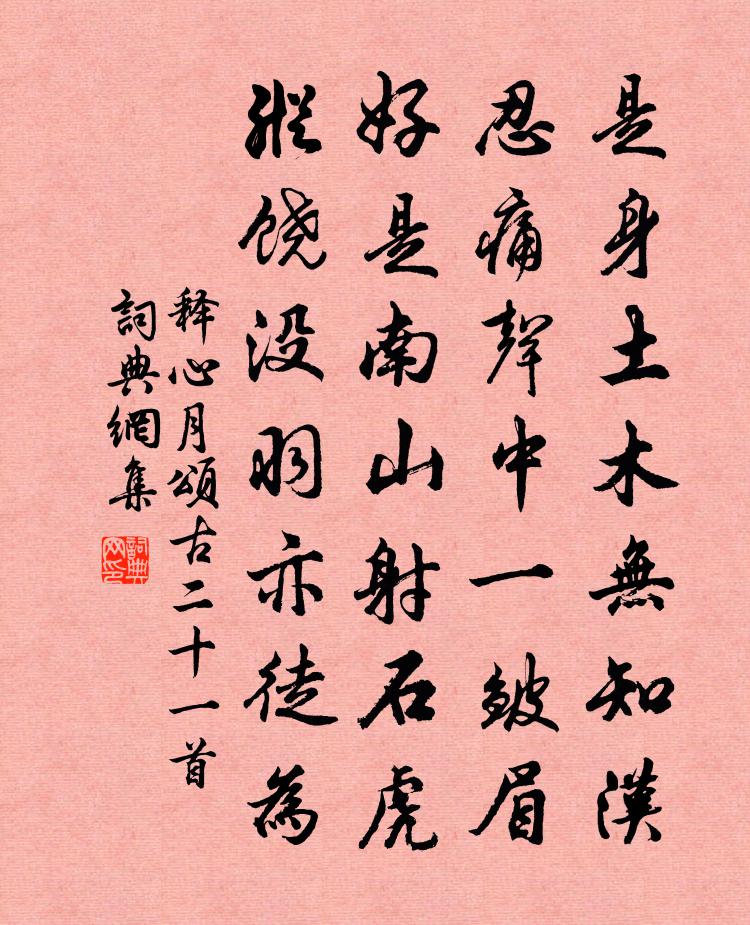 是身土木無知漢
忍痛聲中一皺眉
好是南山射石虎
縱饶没羽亦徒為
释心月頌古二十一首
詞典網集
詞典網印